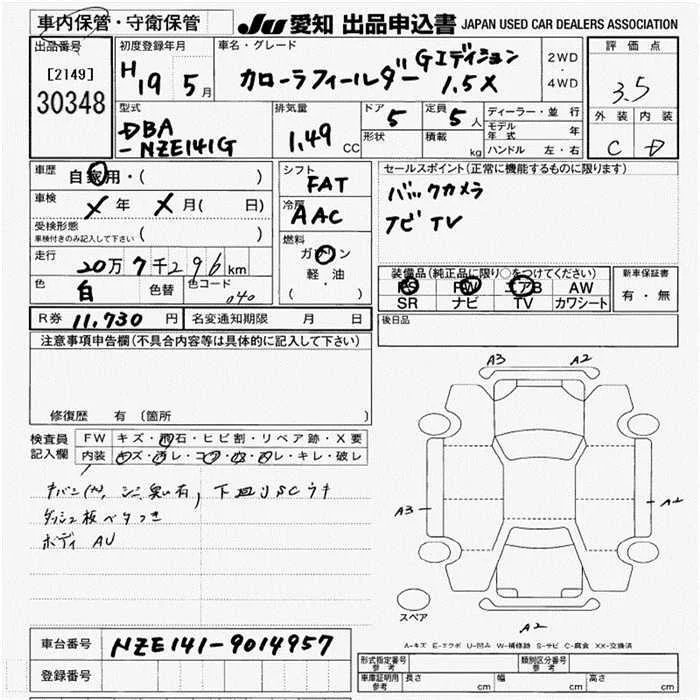 車内保管・守衛保管
JU 愛知 出品申込書 JAPAN USED CAR DEALERS ASSOCIATION
出品番号
[2149]
30348
初度登録年月
H19 5月
車名・グレード
カローラフィールダー Gエディション
1.5X
2WD
・
4WD
評価点
3.5
外装 内装
C D
型式
DBA
-NZE141G
排気量
1.49 CC
ドア 5
形状
定員 5人
積載 kg
ディーラー・並行
モデル年式 年
ハンドル 左・右
車歴
自家用・( )
車検
X年 X月( 日)
受検形態
車検付きのみ記入して下さい ( )
走行
20万7千296km
色
白
色替
色コード
040
シフト
FAT
冷房
AAC
燃料
ガソリン
軽・油
( ・ )
セールスポイント(正常に機能するものに限ります)
バックカメラ
ナビ TV
装備品(純正品に限り○をつけてください)
PS PW エアB AW
SR ナビ TV カワシート
新車保証書
有・無
R券 11,730 円
名変通知期限 月 日
後日品
注意事項申告欄(不具合内容等は具体的に記入して下さい)
修復歴 有 (箇所 )
検査員
記入欄
FW キズ・飛石・ヒビ割・リペア跡・X要
内装 キズ・汚レ・コゲ・穴・スレ・キレ・破レ
下回りSCウキ
ダッシュ板ベタつき
ボディ AU
A3 A2
A3
A2
A2
スペア
A-キズ E-エクボ U-凹み W-補修跡 S-サビ C-腐食 XX-交換済
車台番号 NZE141-9014957
登録番号
形式指定番号
参考
類別区分番号
参考
車庫証明用
参考
長さ cm 幅 cm 高さ cm